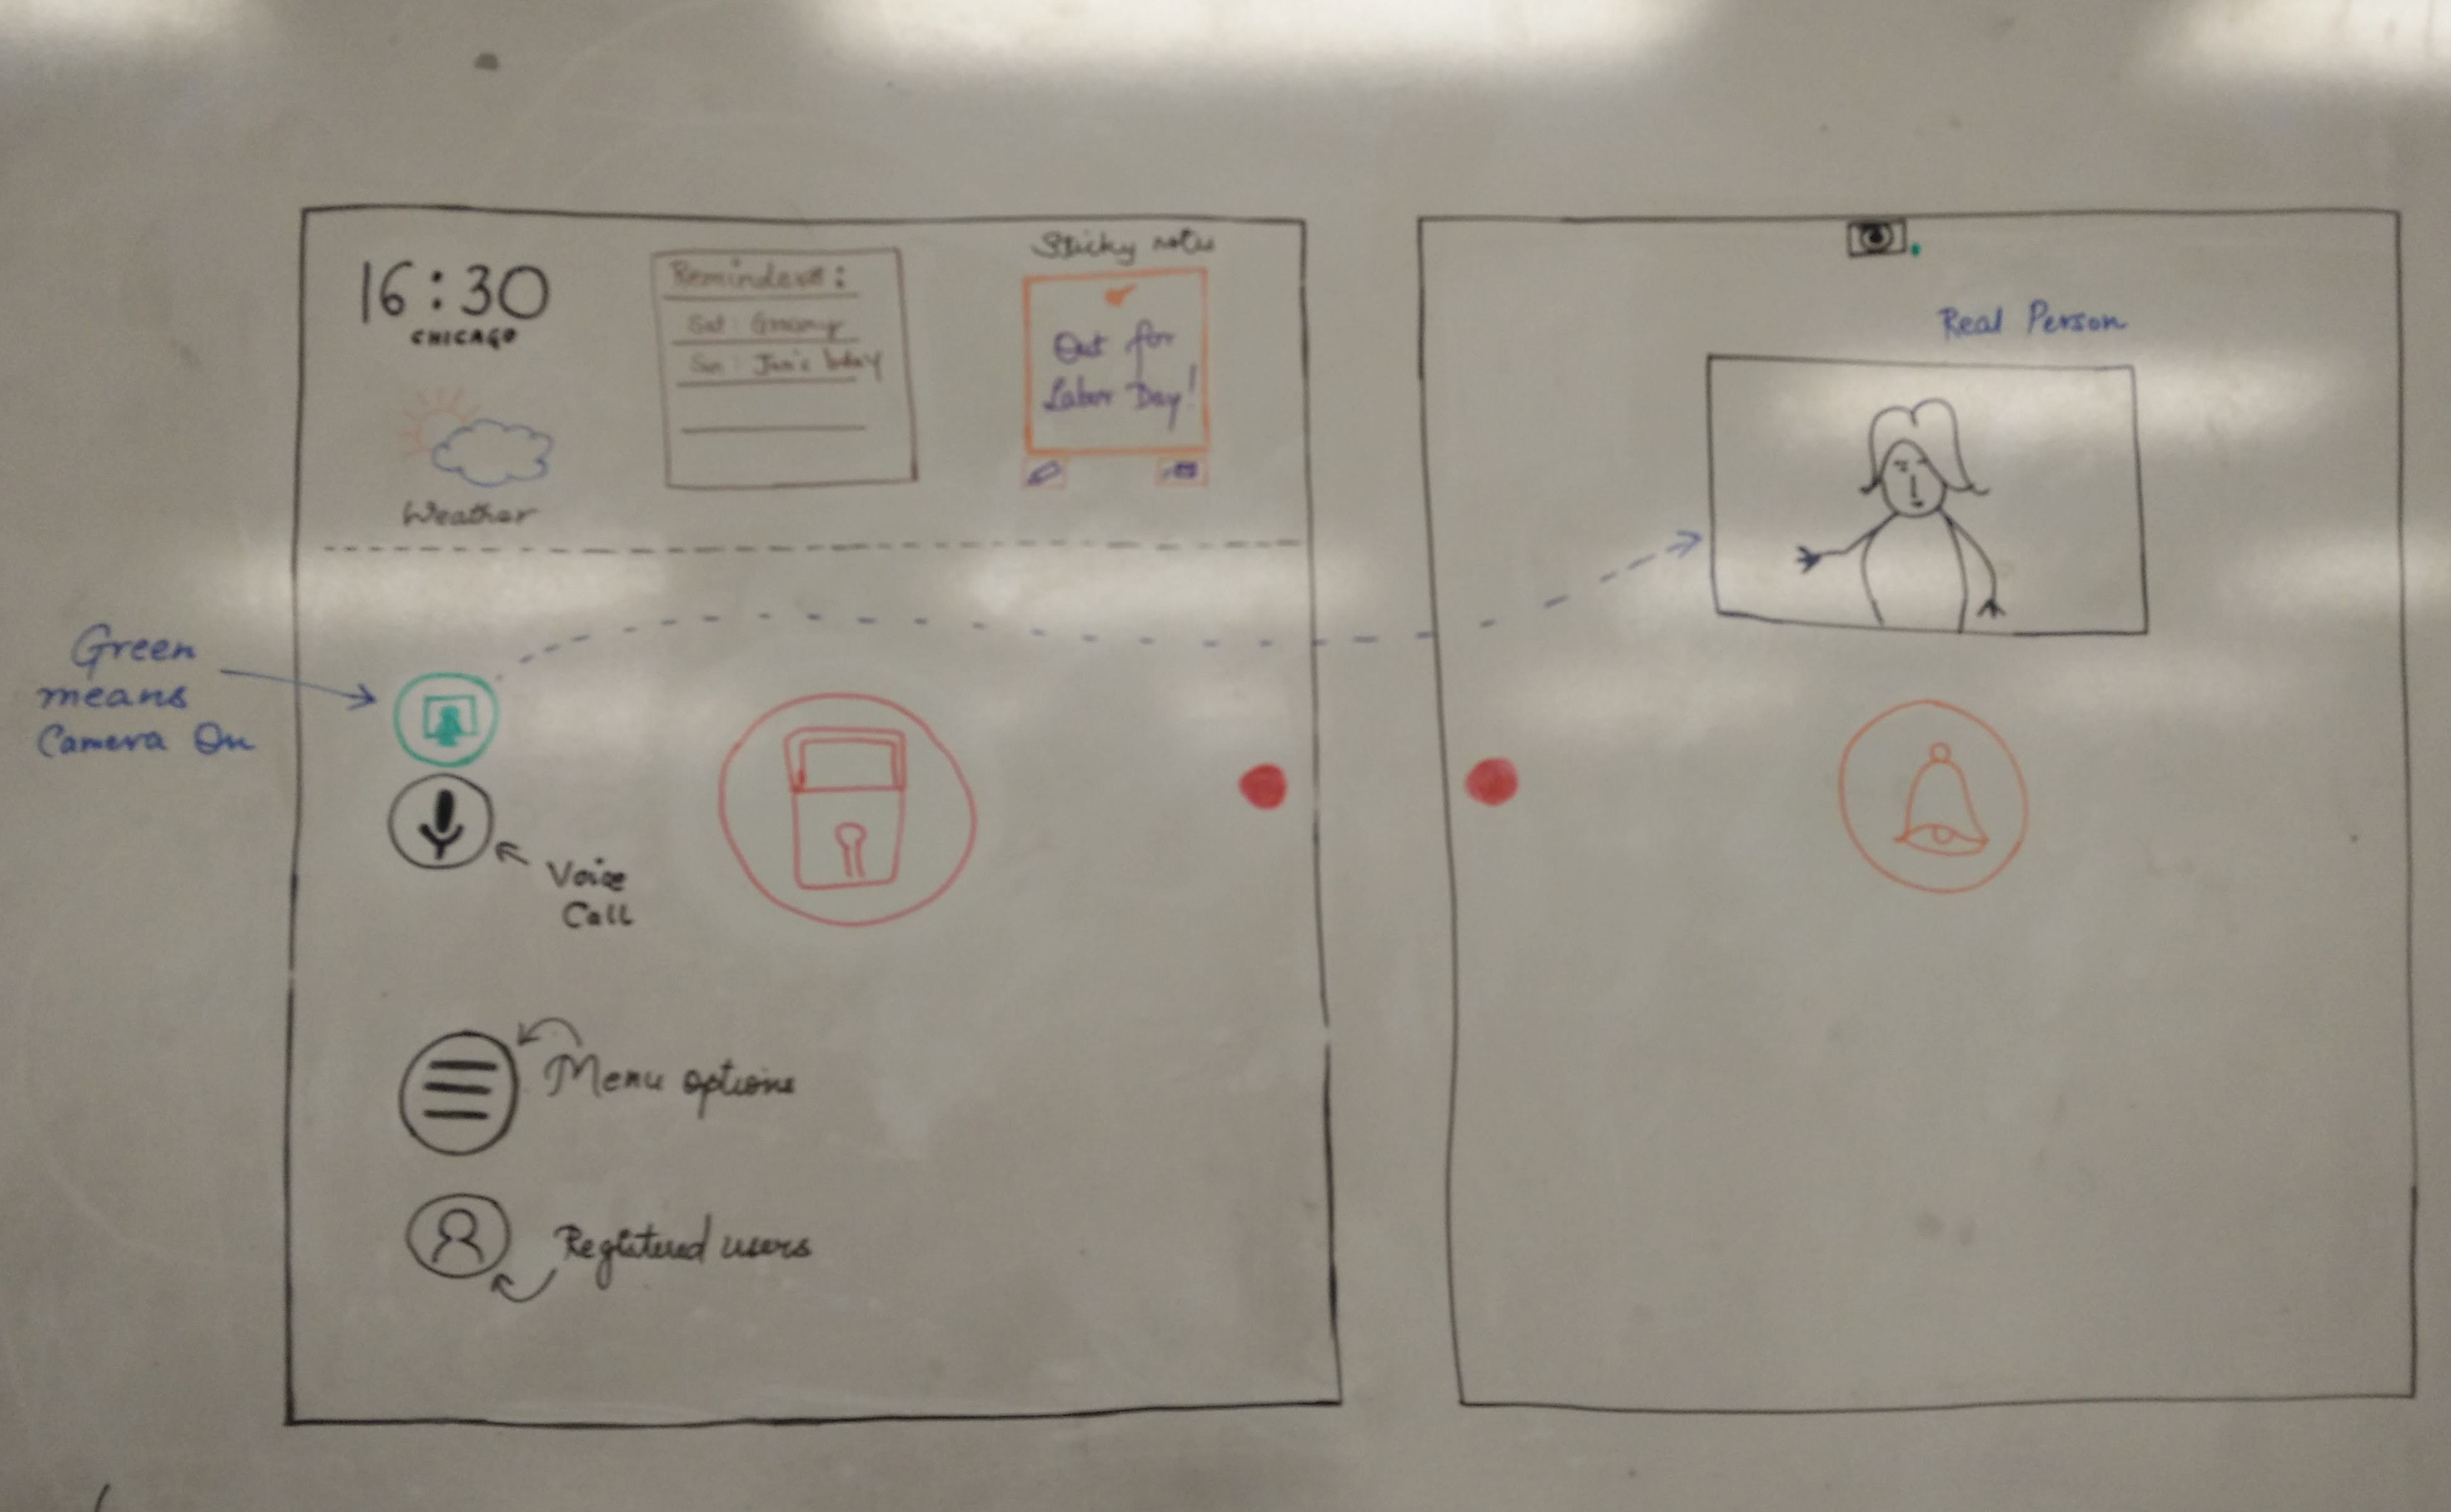 16:30
CHICAGO
Weather
Reminders:
Sat: Grocery
Sun: Jan's bday
Sticky notes
Out for
Labor Day!
Green
means
Camera On
Voice
Call
Menu options
Registered users
Real Person